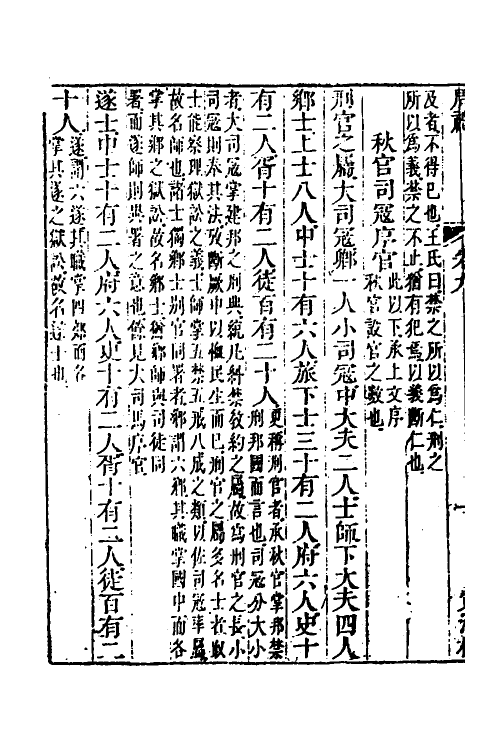 及者不得已也王氏曰禁之所以爲仁刑之
所以爲義禁之不止猶有犯焉以義斷仁也
秋官司寇序官
此以下承上文序
秋官設官之數也
刑官之屬大司寇卿一人小司寇中大夫二人士師下大夫四人
鄉士上士八人中士十有六人旅下士三十有二人府六人史十
有二人胥十有二人徒百有二十人
更稱刑官者承秋官掌邦禁
刑邦國而言也司寇分大小
者大司寇掌建邦之刑典統凡糾禁敎約之屬故爲刑官之長小
司寇則奉其法攷斷厥中以恤民生而巳刑官之屬多名士者取
士能察理獄訟之義士師掌五禁五戒八成之類以佐司寇率屬
故名師也諸士獨鄉士別官同署者鄉謂六鄉其職掌國中而各
掌其鄉之獄訟故名鄉士猶鄉師與司徒同
署而遂師則異署之意也餘見大司馬序官
遂士中士十有二人府六人史十有二人胥十有二人徒百有二
十人
遂謂六遂其職掌四郊而各
掌其遂之獄訟故名遂士也